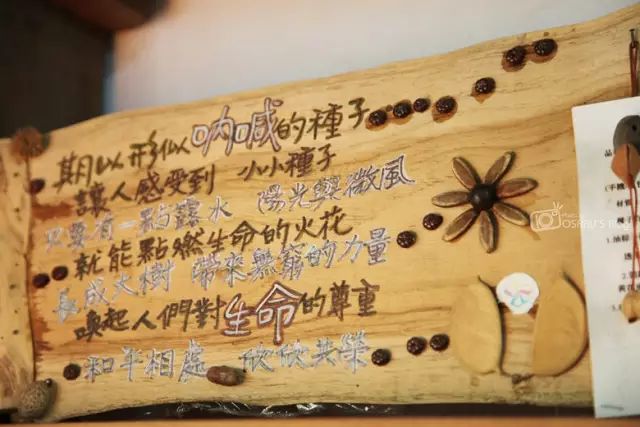 期以形似吶喊的種子
讓人感受到 小小種子
只要有一點露水 陽光與微風
就能點燃生命的火花
長成大樹 帶來無窮的力量
喚起人們對生命的尊重
和平相處 欣欣共榮
OSABU'S BLOG
品
(手機
材質
種子
1.油棕
2.
黃
3.